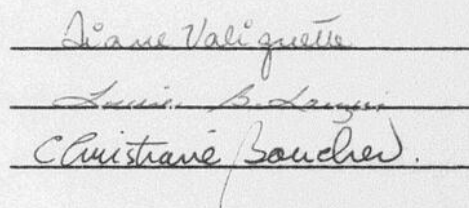 Diane Valiquette
Louise B.
Christiane Boucher.